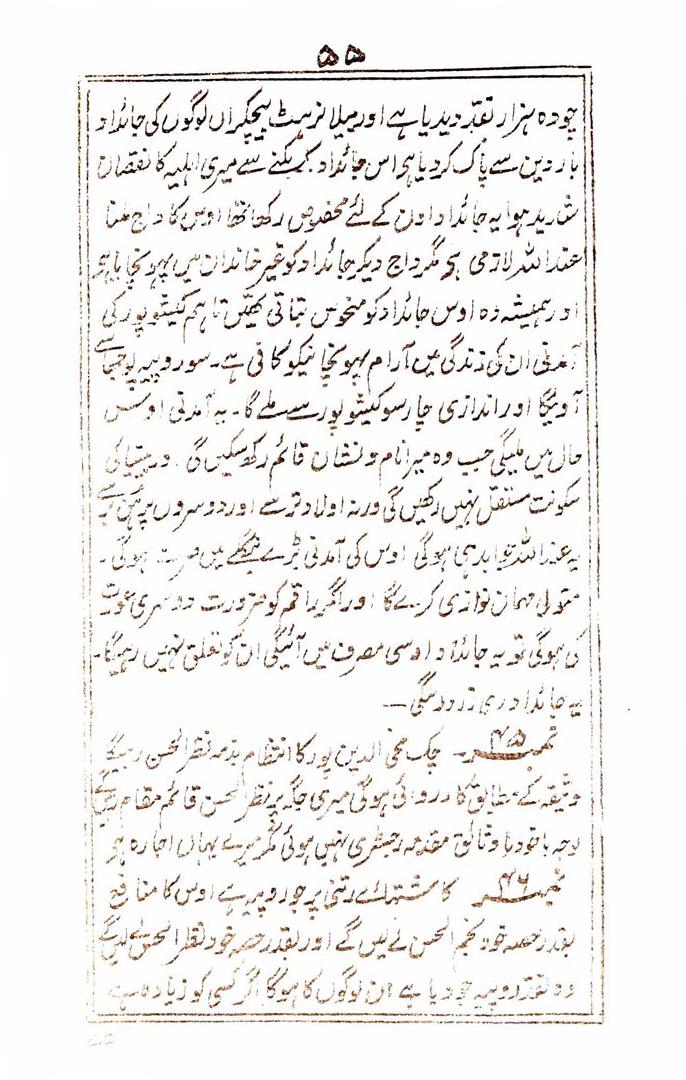 ۵۵
چودہ ہزار نقد دیدیا ہے اور میلانرہٹ بیچکر ان لوگوں کی جائداد
بار دین سے پاک کردیا ہی اس جائداد کے بکنے سے میری اہلیہ کا نقصان
شدید ہوا یہ جائداد اون کے لئے مخصوص رکھا تھا اوس کا داج ملنا
عند اللہ لازمی ہی مگر داج دیگر جائداد کو غیر خاندان میں پہونچایا ہی
اور ہمیشہ وہ اوس جائداد کو منحوس بتاتی تھیں تاہم کیشوپور کی
آمدنی ان کی زندگی میں آرام پہونچانیکو کافی ہے۔ سو روپیہ سے
آویگا اور اندازی چار سو کیشوپور سے ملے گا۔ یہ آمدنی اوس
حال میں ملیگی جب وہ میرا نام و نشان قائم رکھ سکیں گی۔ و
سکونت مستقل نہیں رکھیں گی ورنہ اولاد اور دوسروں پر
یہ عند اللہ جوابدہی ہوگی اوس کی آمدنی بڑے بنگلے میں صرف ہوگی۔
متولی مہمان نوازی کرے گا اور اگر راقم کو ضرورت دوسری عورت
کی ہوگی تو یہ جائداد اوسی مصرف میں آئیگی ان کو تعلق نہیں رہیگا۔
یہ جائداد ۔
نمبر ۴۵ ۔ چک محی الدین پور کا انتظام بذمہ نظر الحسن رہیگا
وثیقہ کے مطابق کارروائی ہوگی میری جگہ پر نظر الحسن قائم مقام رہیں گے
بوجہ وثائق مقدمہ رجسٹری نہیں ہوئی مگر میرے یہاں اجارہ ہی
نمبر ۴۶ کا رتنی پر جو روپیہ ہے اوس کا منافع
بقدر حصہ خود نجم الحسن لے لیں گے اور بقدر حصہ خود نظر الحسن لے لیں گے
وہ نقد روپیہ جو دیا ہے ان لوگوں کا ہوگا اگر کسی کو زیادہ ہے